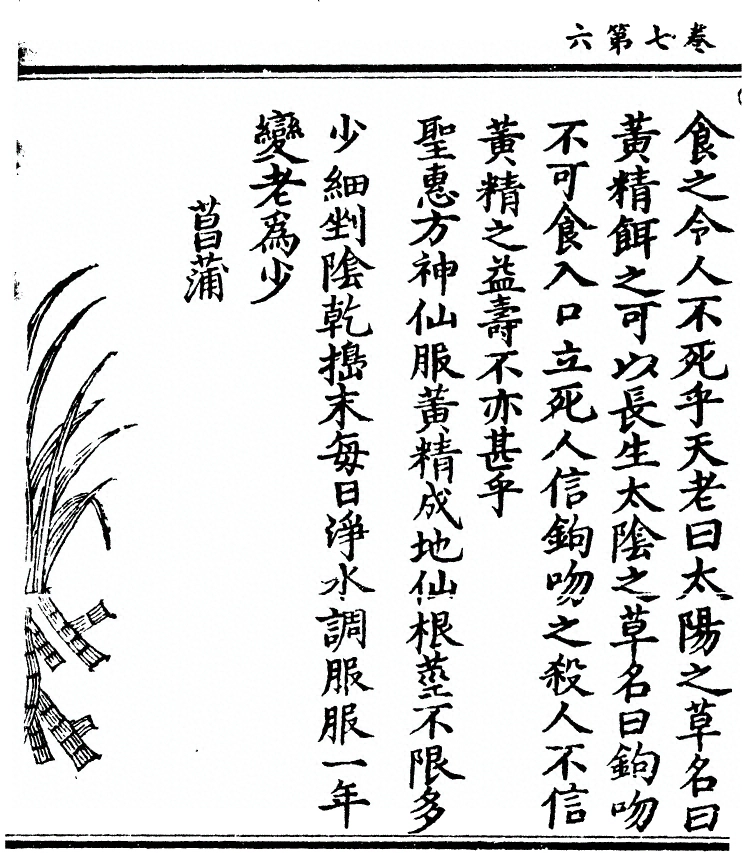 卷七第六
食之令人不死乎天老曰太陽之草名曰
黃精餌之可以長生太陰之草名曰鉤吻
不可食入口立死人信鉤吻之殺人不信
黃精之益壽不亦甚乎
聖惠方神仙服黃精成地仙根莖不限多
少細剉陰乾搗末每日淨水調服服一年
變老爲少
菖蒲